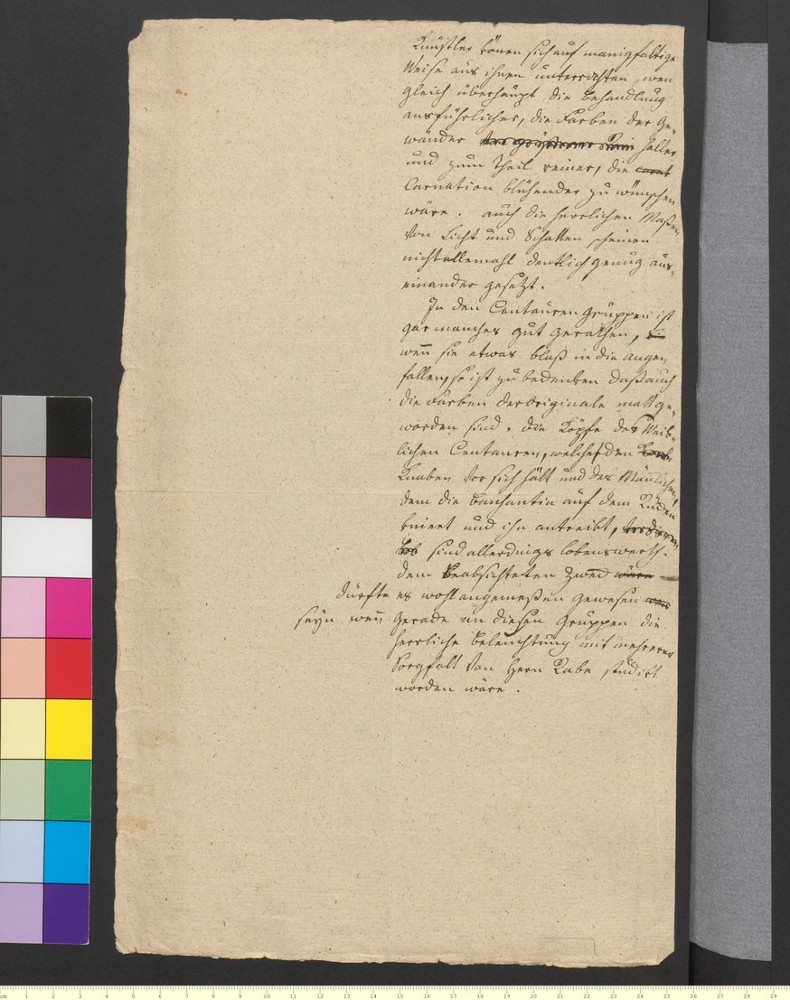 Künstler könen sich auf manigfaltige
Weise aus ihnen unterrichten, wen
gleich überhaupt die Behandlung
ausführlicher, die Farben der Ge-
wänder heller
und zum Theil reiner, die
Carnation blühender zu wünschen
wäre. auch die herrlichen Maßen
von Licht und Schatten scheinen
nicht allemahl deutlich genug aus-
einander gesetzt.
In den Centauren Gruppen ist
gar manches gut gerathen,
wen̄ sie etwas blaß in die Augen
fallen, so ist zu bedenken daß auch
die Farben der Originale matt ge-
worden sind. die Köpfe des Weib-
lichen Centauren, welcher den
Knaben vor sich hält und des Mänlichen,
dem die Bachantin auf dem Rücken
kniet und ihn antreibt,
sind allerdings lobenswerth.
dem beabsichteten Zweck wäre
dürfte es wohl angemeßen gewesen
seyn wen̄ gerade an diesen Gruppen die
herrliche Beleuchtung mit mehrerer
Sorgfalt von Hern Rabe studirt
worden wäre.